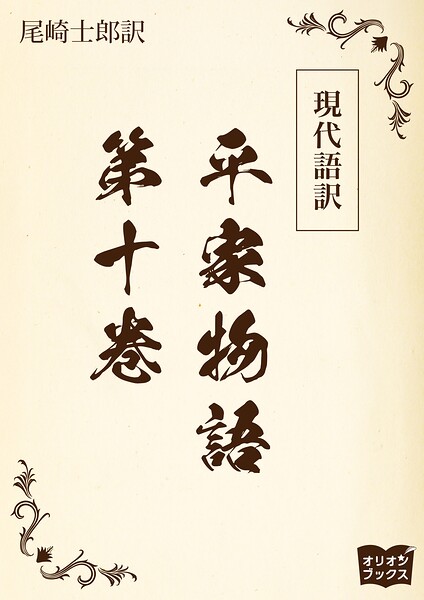 尾崎士郎訳
現代語訳
平家物語
第十巻
オリオン
ブックス